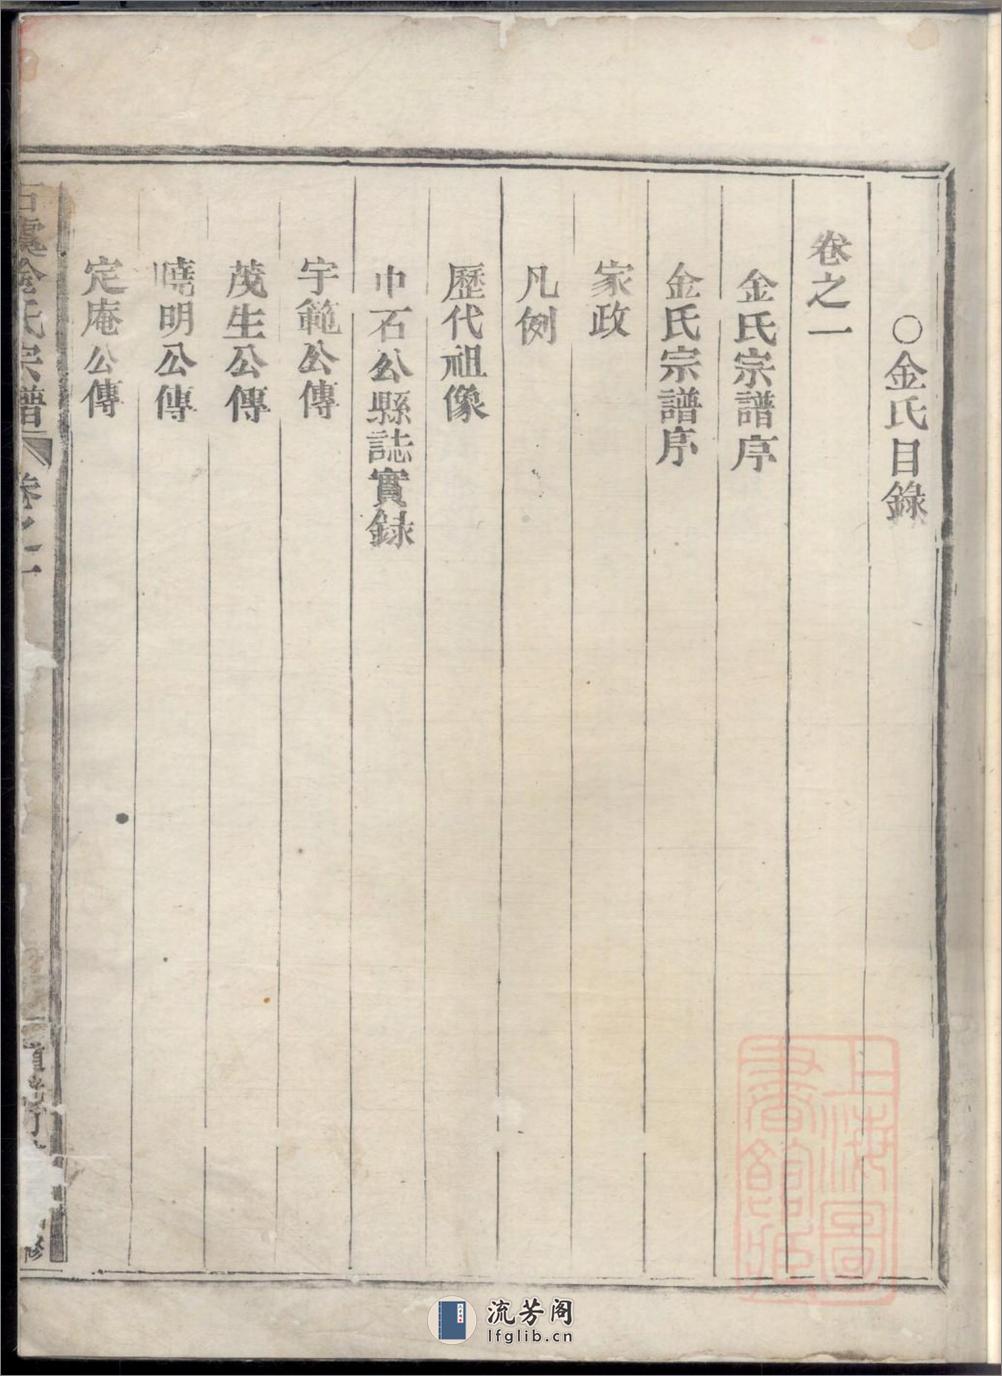 ○金氏目錄
卷之一
金氏宗譜序
金氏宗譜序
家政
凡例
歷代祖像
巾石公縣誌實録
宇範公傳
茂生公傳
曉明公傳
定庵公傳
金氏宗譜
卷之一
修
上海圖
書館藏
流芳阁
lfglib.cn